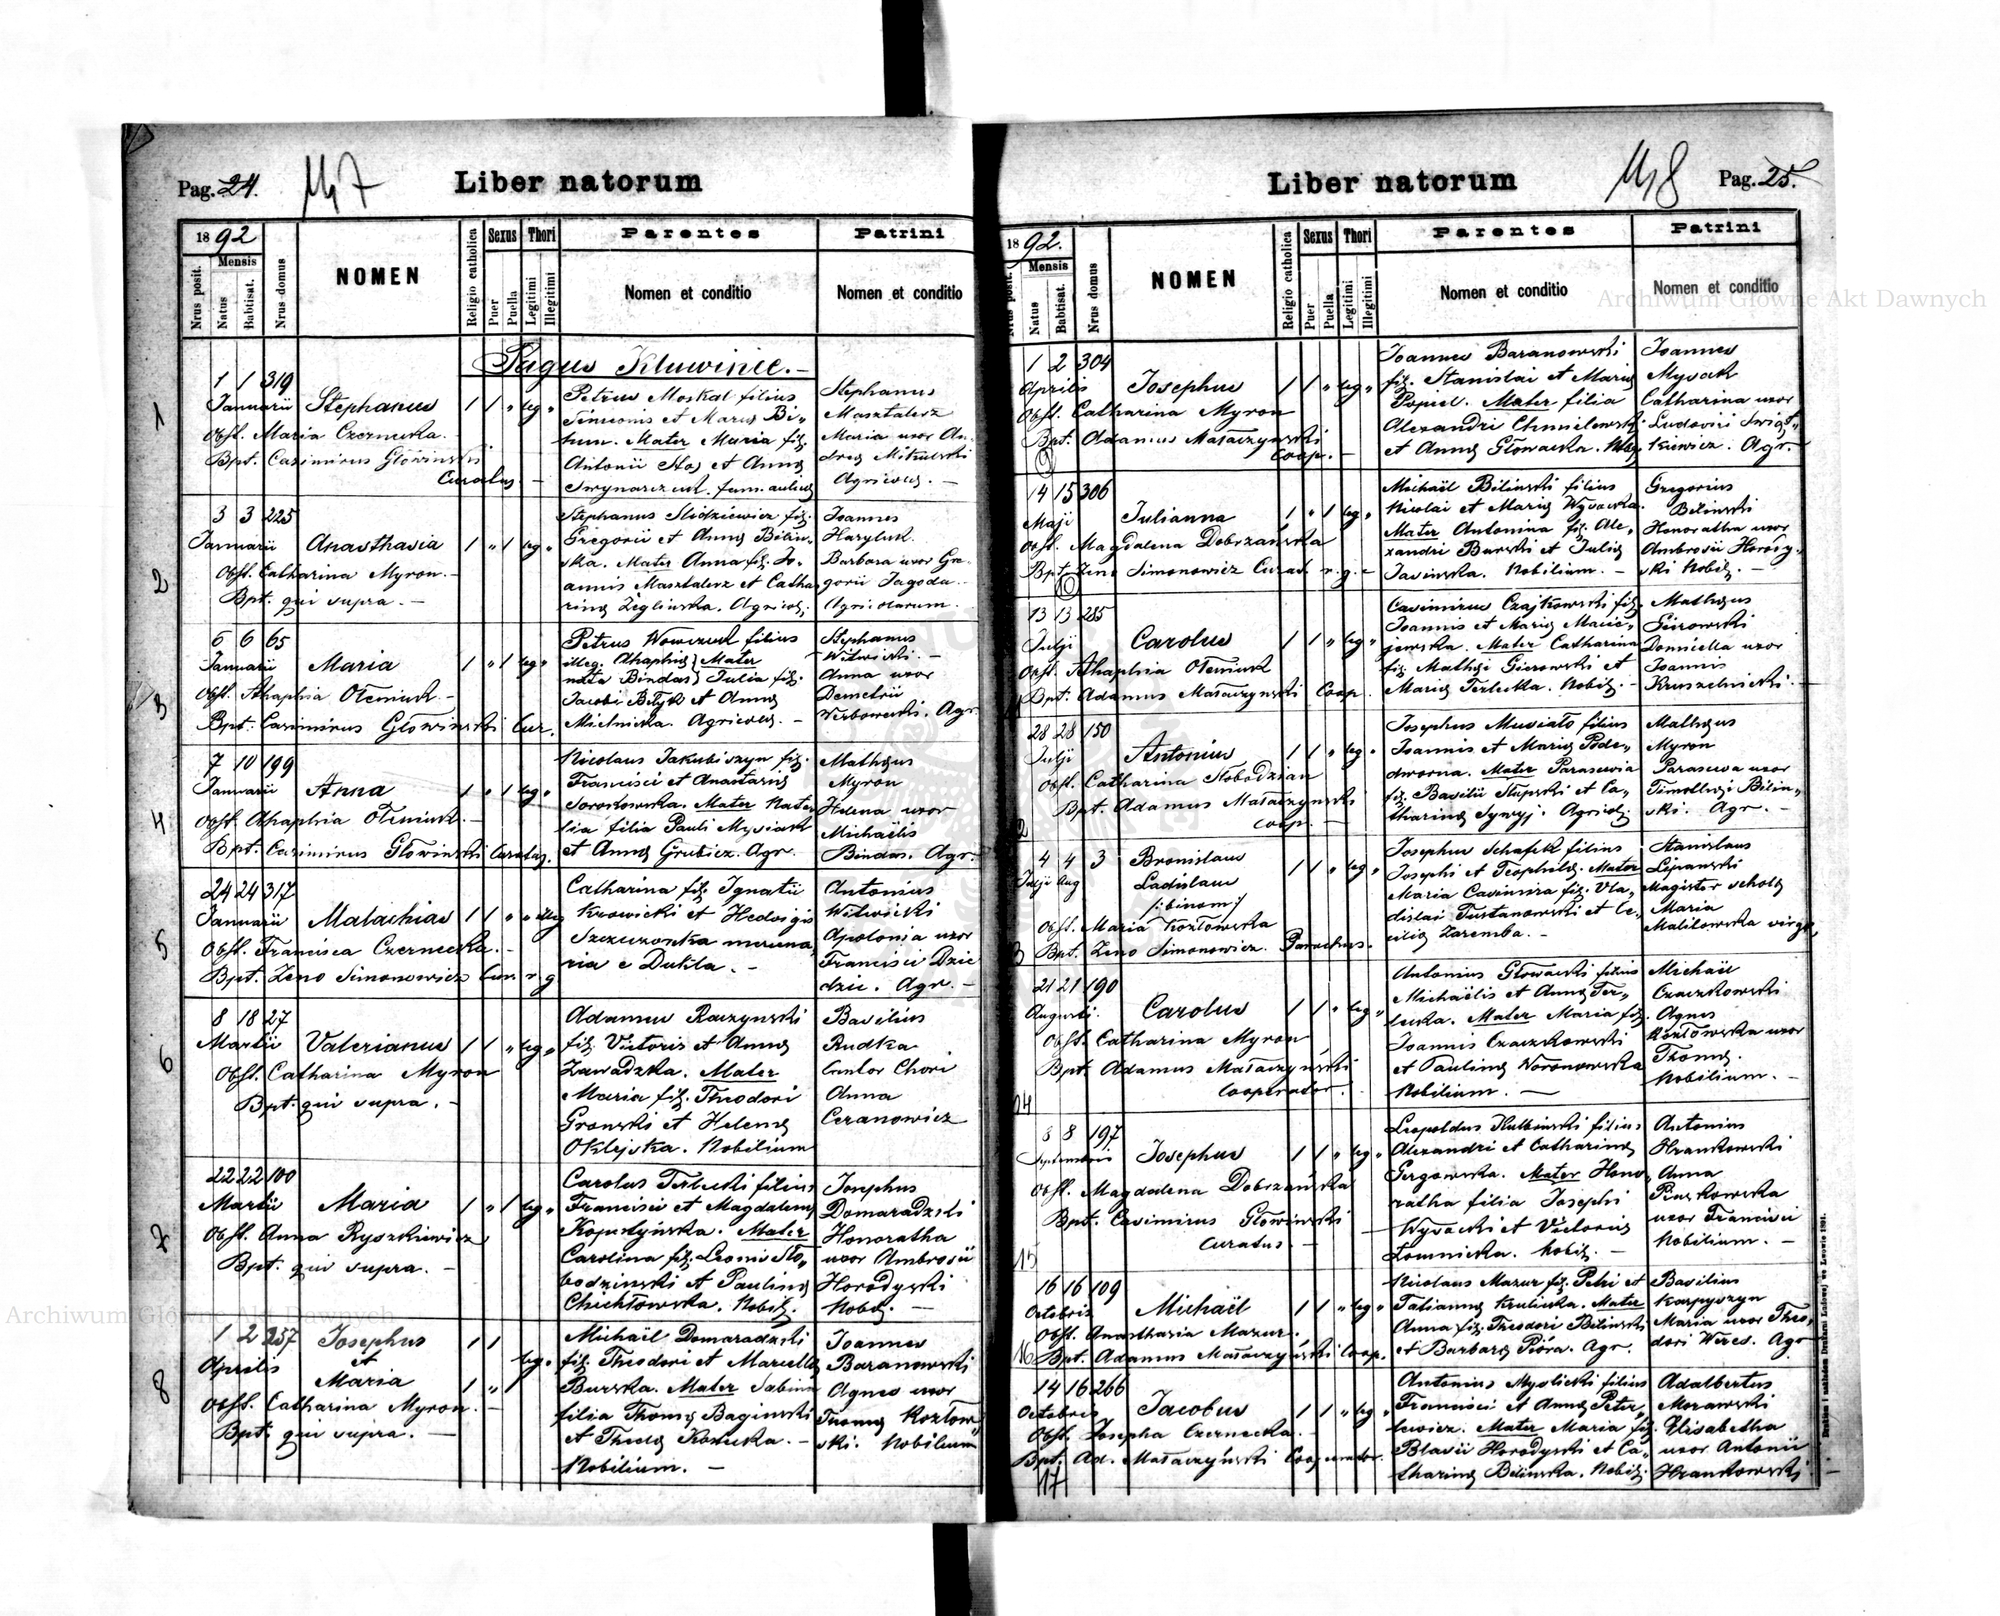 Pag. 24. 147 Liber natorum
1892
Mensis
Nrus posit.
Natus
Babtisat.
Nrus domus
NOMEN
Religio catholica
Sexus
Puer
Puella
Thori
Legitimi
Illegitimi
Parentes
Nomen et conditio
Patrini
Nomen et conditio
Pagus Kluwince. -
1
1 1 319
Januarii Stephanus 1 1 " leg "
Obst. Maria Czernecka.
Bpt. Casimirus Głowiński
Curatus. -
Petrus Moskal filius
Simeonis et Mariæ Bi-
hun. Mater Maria fil.
Antonii et Annæ
Stephanus
Masztalerz
Maria uxor An-
dreæ Mikulski
Agricolæ. -
2
3 3 225
Januarii Anasthasia 1 " 1 leg "
Obst. Catharina Myron. -
Bpt. qui supra. -
Stephanus Slidziewicz fil.
Gregorii et Annæ Bilin-
ska. Mater Anna fil. Jo-
annis Masztalerz et Catha-
rinæ Żeglinska. Agricol.
Joannes
Haryluk.
Barbara uxor Gre-
gorii Jagoda. -
Agricolarum.
3
6 6 65
Januarii Maria 1 " 1 leg "
Obst. Ahaphia Oleniuk. -
Bpt. Casimirus Głowinski Cur.
Petrus Wowczuk filius
illeg. Ahaphiæ Mater
nata Bindas Julia fil.
Jacobi Bilyk et Annæ
Mielnicka. Agricolæ. -
Stephanus
Witwicki. -
Anna uxor
Demetrii
Werbowecki. Agr.
4
7 10 199
Januarii Anna 1 " 1 leg "
Obst. Ahaphia Oleniuk. -
Bpt. Casimirus Głowinski Curatus.
Nicolaus Jakubiszyn fil.
Francisci et Anastasiæ
Sorokowska. Mater Nata-
lia filia Pauli Mysiak
et Annæ Grubicz. Agr.
Matheus
Myron
Helena uxor
Michaëlis
Bindas. Agr.
5
24 24 317
Januarii Malachias 1 1 " " illeg
Obst. Francisca Czernecka. -
Bpt. Zeno Simonowicz Cur. r g
Catharina fil. Ignatii
Krowicki et Hedvigis
Szczurowska mercena-
ria e Dukla. -
Antonius
Witwicki
Apolonia uxor
Francisci Dzie
dzic. Agr. -
6
8 18 27
Martii Valerianus 1 1 " leg "
Obst. Catharina Myron
Bpt. qui supra. -
Adamus Raczynski
fil. Victoris et Annæ
Zawadzka. Mater
Maria fil. Theodori
Gronski et Helenæ
Oklejska. Nobilium
Basilius
Rudka
Cantor Chori
Anna
Ceranowicz
7
22 22 100
Martii Maria 1 " 1 leg "
Obst. Anna Ryszkiewicz
Bpt. qui supra. -
Carolus Terlecki filius
Francisci et Magdalenæ
Kopestyńska. Mater
Carolina fil. Leonis Sło-
bodzinski et Paulinæ
Chichłowska. Nobil.
Josephus
Domaradzki
Honoratha
uxor Ambrosii
Horodyski
Nobil. -
8
1 2 257 Josephus 1 1
Aprilis et leg "
Maria 1 " 1
Obst. Catharina Myron. -
Bpt. qui supra. -
Michaël Domaradzki
fil. Theodori et Marcellæ
Burska. Mater Sabina
filia Thomæ Baginski
et Theclæ Konecka. -
Nobilium. -
Joannes
Baranowski
Agnes uxor
Thomæ Kozłow-
ski. Nobilium
Liber natorum 148 Pag. 25.
1892.
Mensis
Nrus posit.
Natus
Babtisat.
Nrus domus
NOMEN
Religio catholica
Sexus
Puer
Puella
Thori
Legitimi
Illegitimi
Parentes
Nomen et conditio
Patrini
Nomen et conditio
1 2 304
Aprilis Josephus 1 1 " leg "
Obst. Catharina Myron
Bpt. Adamus Małaczynski
Coop. -
9
Joannes Baranowski
fil. Stanislai et Mariæ
Popiel. Mater filia
Alexandri Chmielewski
et Annæ Głowacka.
Joannes
Mysak
Catharina uxor
Ludovici
kiewicz. Agr.
14 15 306
Maji Julianna 1 " 1 leg "
Obst. Magdalena Dobrzańska
Bpt. Zeno Simonowicz Curat. r. g. c
10
Michaël Bilinski filius
Nicolai et Mariæ Wysocka.
Mater Antonina fil. Ale-
xandri Burski et Juliæ
Jasinska. Nobilium. -
Gregorius
Bilinski
Honoratha uxor
Ambrosii Horody-
ski Nobil. -
13 13 285
Julji Carolus 1 1 " leg "
Obst. Ahaphia Oleniuk
Bpt. Adamus Małaczynski Coop.
Casimirus Czajkowski fil.
Joannis et Mariæ Macie-
jewska. Mater Catharina
fil. Mathei Gierowski et
Mariæ Terlecka. Nobil. -
Matheus
Gierowski
Domicella uxor
Joannis
Kruszelnicki. -
28 28 150
Julji Antonius 1 1 " leg "
Obst. Catharina Słobodzian
Bpt. Adamus Małaczynski
Coop. -
Josephus Musiało filius
Joannis et Mariæ Pode-
dworna. Mater Parascevia
fil. Basilii Słupski et Ca-
tharinæ Synyj. Agricol.
Matheus
Myron
Parasceva uxor
Timothei Bilin-
ski. Agr. -
4 4 3 Bronislaus
Julji Aug Ladislaus 1 1 " leg "
/:binom:/
Obst. Maria Kozłowska
Bpt. Zeno Simonowicz. Parochus.
Josephus Schafek filius
Josephi et Teophilæ. Mater
Maria Casimira fil. Vla-
dislai Tustanowski et Ce-
ciliæ Zaremba. -
Stanislaus
Lipanski
Magister scholæ
Maria
Malikowska virgo,
21 21 190
Augusti. Carolus 1 1 " leg "
Obst. Catharina Myron
Bpt. Adamus Małaczyński
Cooperator.
14
Antonius Głowacki filius
Michaëlis et Annæ Ter-
lecka. Mater Maria fil.
Joannis Czaczkowski
et Paulinæ Woronowska
Nobilium. -
Michaël
Czaczkowski
Agnes
Kozłowska uxor
Thomæ.
Nobilium. -
8 8 197
Septembris Josephus 1 1 " leg "
Obst. Magdalena Dobrzańska
Bpt. Casimirus Głowiński
Curatus. -
15
Leopoldus Kulbinski filius
Alexandri et Catharinæ
Gergowska. Mater Hono-
ratha filia Josephi
Wysocki et Victoriæ
Łomnicka. Nobil. -
Antonius
Hrankowski
Anna
Piaskowska
uxor Francisci
Nobilium. -
16 16 109
Octobris Michaël 1 1 " leg "
Obst. Anasthasia Mazur.
Bpt. Adamus Małaczyński Coop.
16
Nicolaus Mazur fil. Petri et
Tatiannæ Krulicka. Mater
Anna fil. Theodori Bilinski
et Barbaræ Pióra. Agr.
Basilius
Karpyszyn
Maria uxor Theo-
dori Weres. Agr
14 16 266
Octobris Jacobus 1 1 " leg "
Obst. Josepha Czernecka.
Bpt. Ad. Małaczyński Cooperator.
17
Antonius Myslicki filius
Francisci et Annæ Peter-
lewicz. Mater Maria fil.
Blasii Horodyski et Ca-
tharinæ Bilinska. Nobil.
Adalbertus
Morawski
Elisabetha
uxor Antonii
Hrankowski. -
Drukiem i nakładem Drukarni Ludowej we Lwowie 1891.
Archiwum Główne Akt Dawnych
Archiwum Główne Akt Dawnych